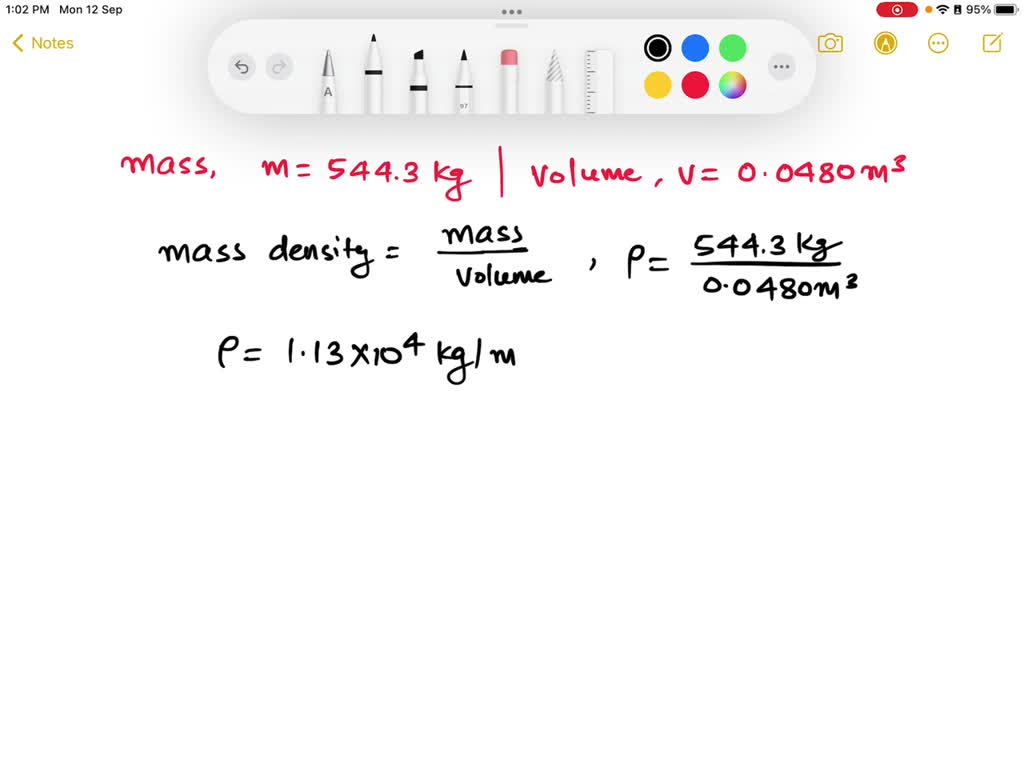 1:02 PM Mon 12 Sep 95%
Notes
A 97
mass, m = 544.3 kg | volume, v = 0.0480 m³
mass density = mass / volume , ρ = 544.3 kg / 0.0480 m³
ρ = 1.13 × 10⁴ kg/m